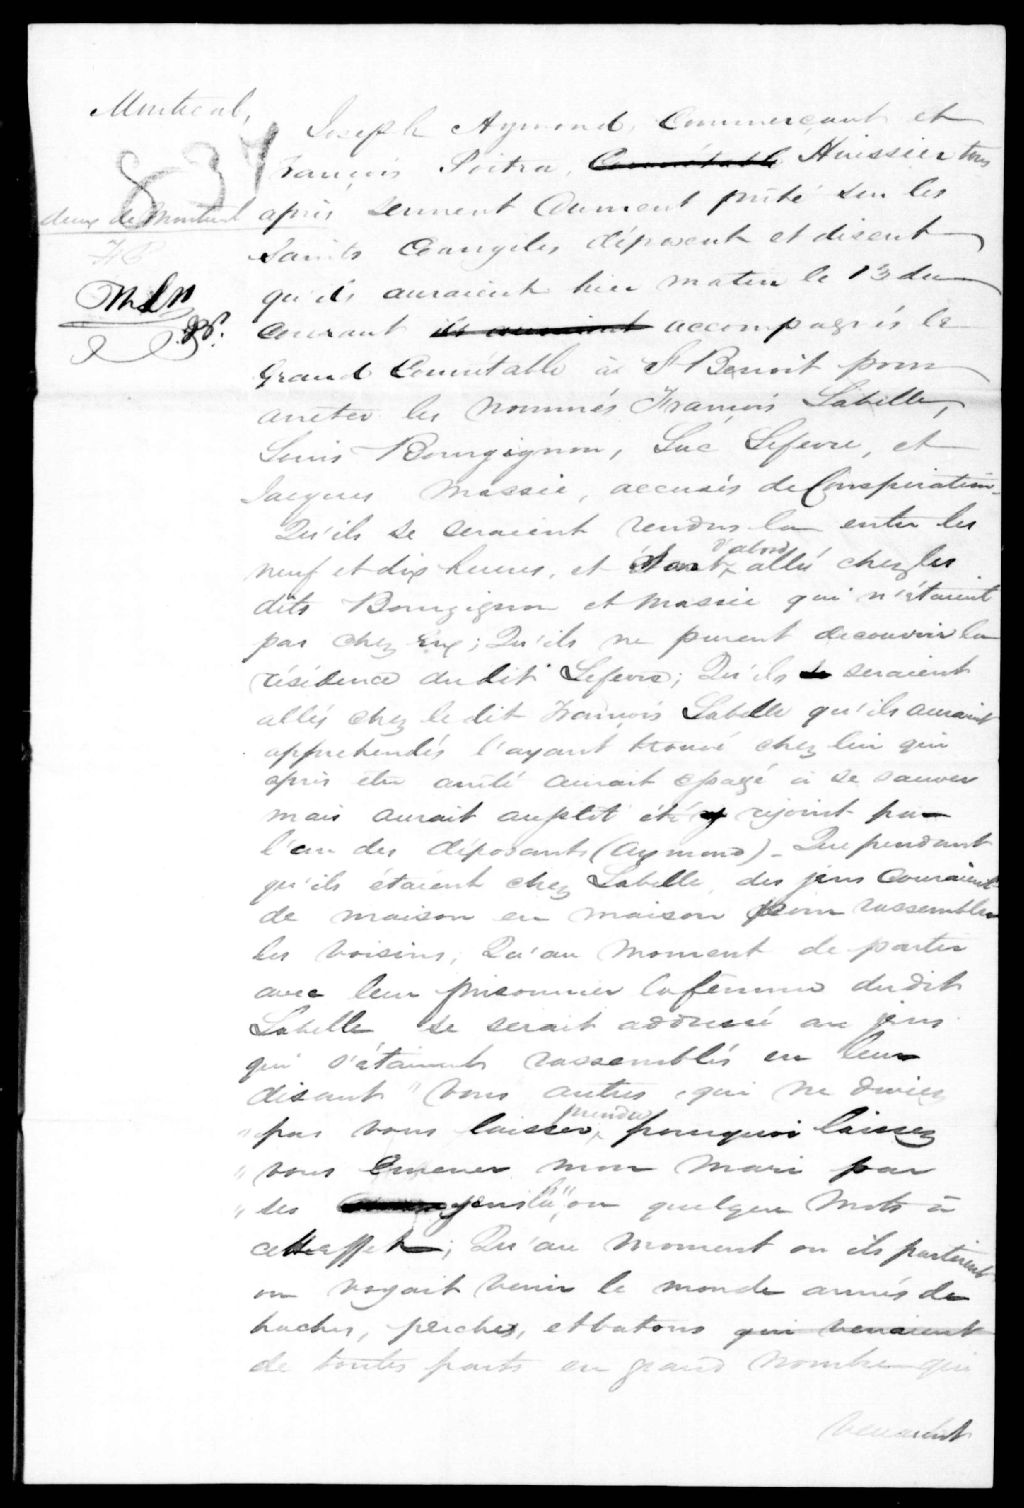 Montreal,
837
Joseph Aymond, Commerçant et
François Poitra, Connétable Huissier tous
deux de Montreal
après serment dument prêté sur les
Saints Evangiles déposent et disent
qu'ils auraient hier matin le 13 du
courant ils auraient accompagnés le
Grand Connétable à St Benoit pour
arreter les nommés François Labelle,
Louis Bourgignon, Luc Lefevre, et
Jacques Massie, accusés de Conspiration.
Qu'ils se seraient rendus la entre les
neuf et dix heures, et étant d'abord allé chez les
dits Bourgignon et Massie qui n'étaient
pas chez eux; Qu'ils ne purent decouvrir la
résidence du dit Lefevre; Qu'ils se seraient
allés chez le dit François Labelle qu'ils auraient
apprehendés l'ayant trouvé chez lui qui
après etre arrêté aurait essayé à se sauver
mais aurait aussitôt été rejoint par
l'un des déposants (Aymond) - Que pendant
qu'ils étaient chez Labelle, des jens couraient
de maison en maison pour rassembler
les voisins; Qu'au moment de partir
avec leur prisonnier la femme du dit
Labelle se serait addressé au jens
qui s'étaient rassemblés en leur
disant "vous autres, qui ne deviez
"pas vous laisser prendre, pourquoi laissez
"vous emener mon mari par
"ses jens là", ou quelque mots à
cet effet; Qu'au moment ou ils partirent
on voyait venir le monde armés de
haches, perches, et batons qui venaient
de toutes parts en grand nombre qui
venaient